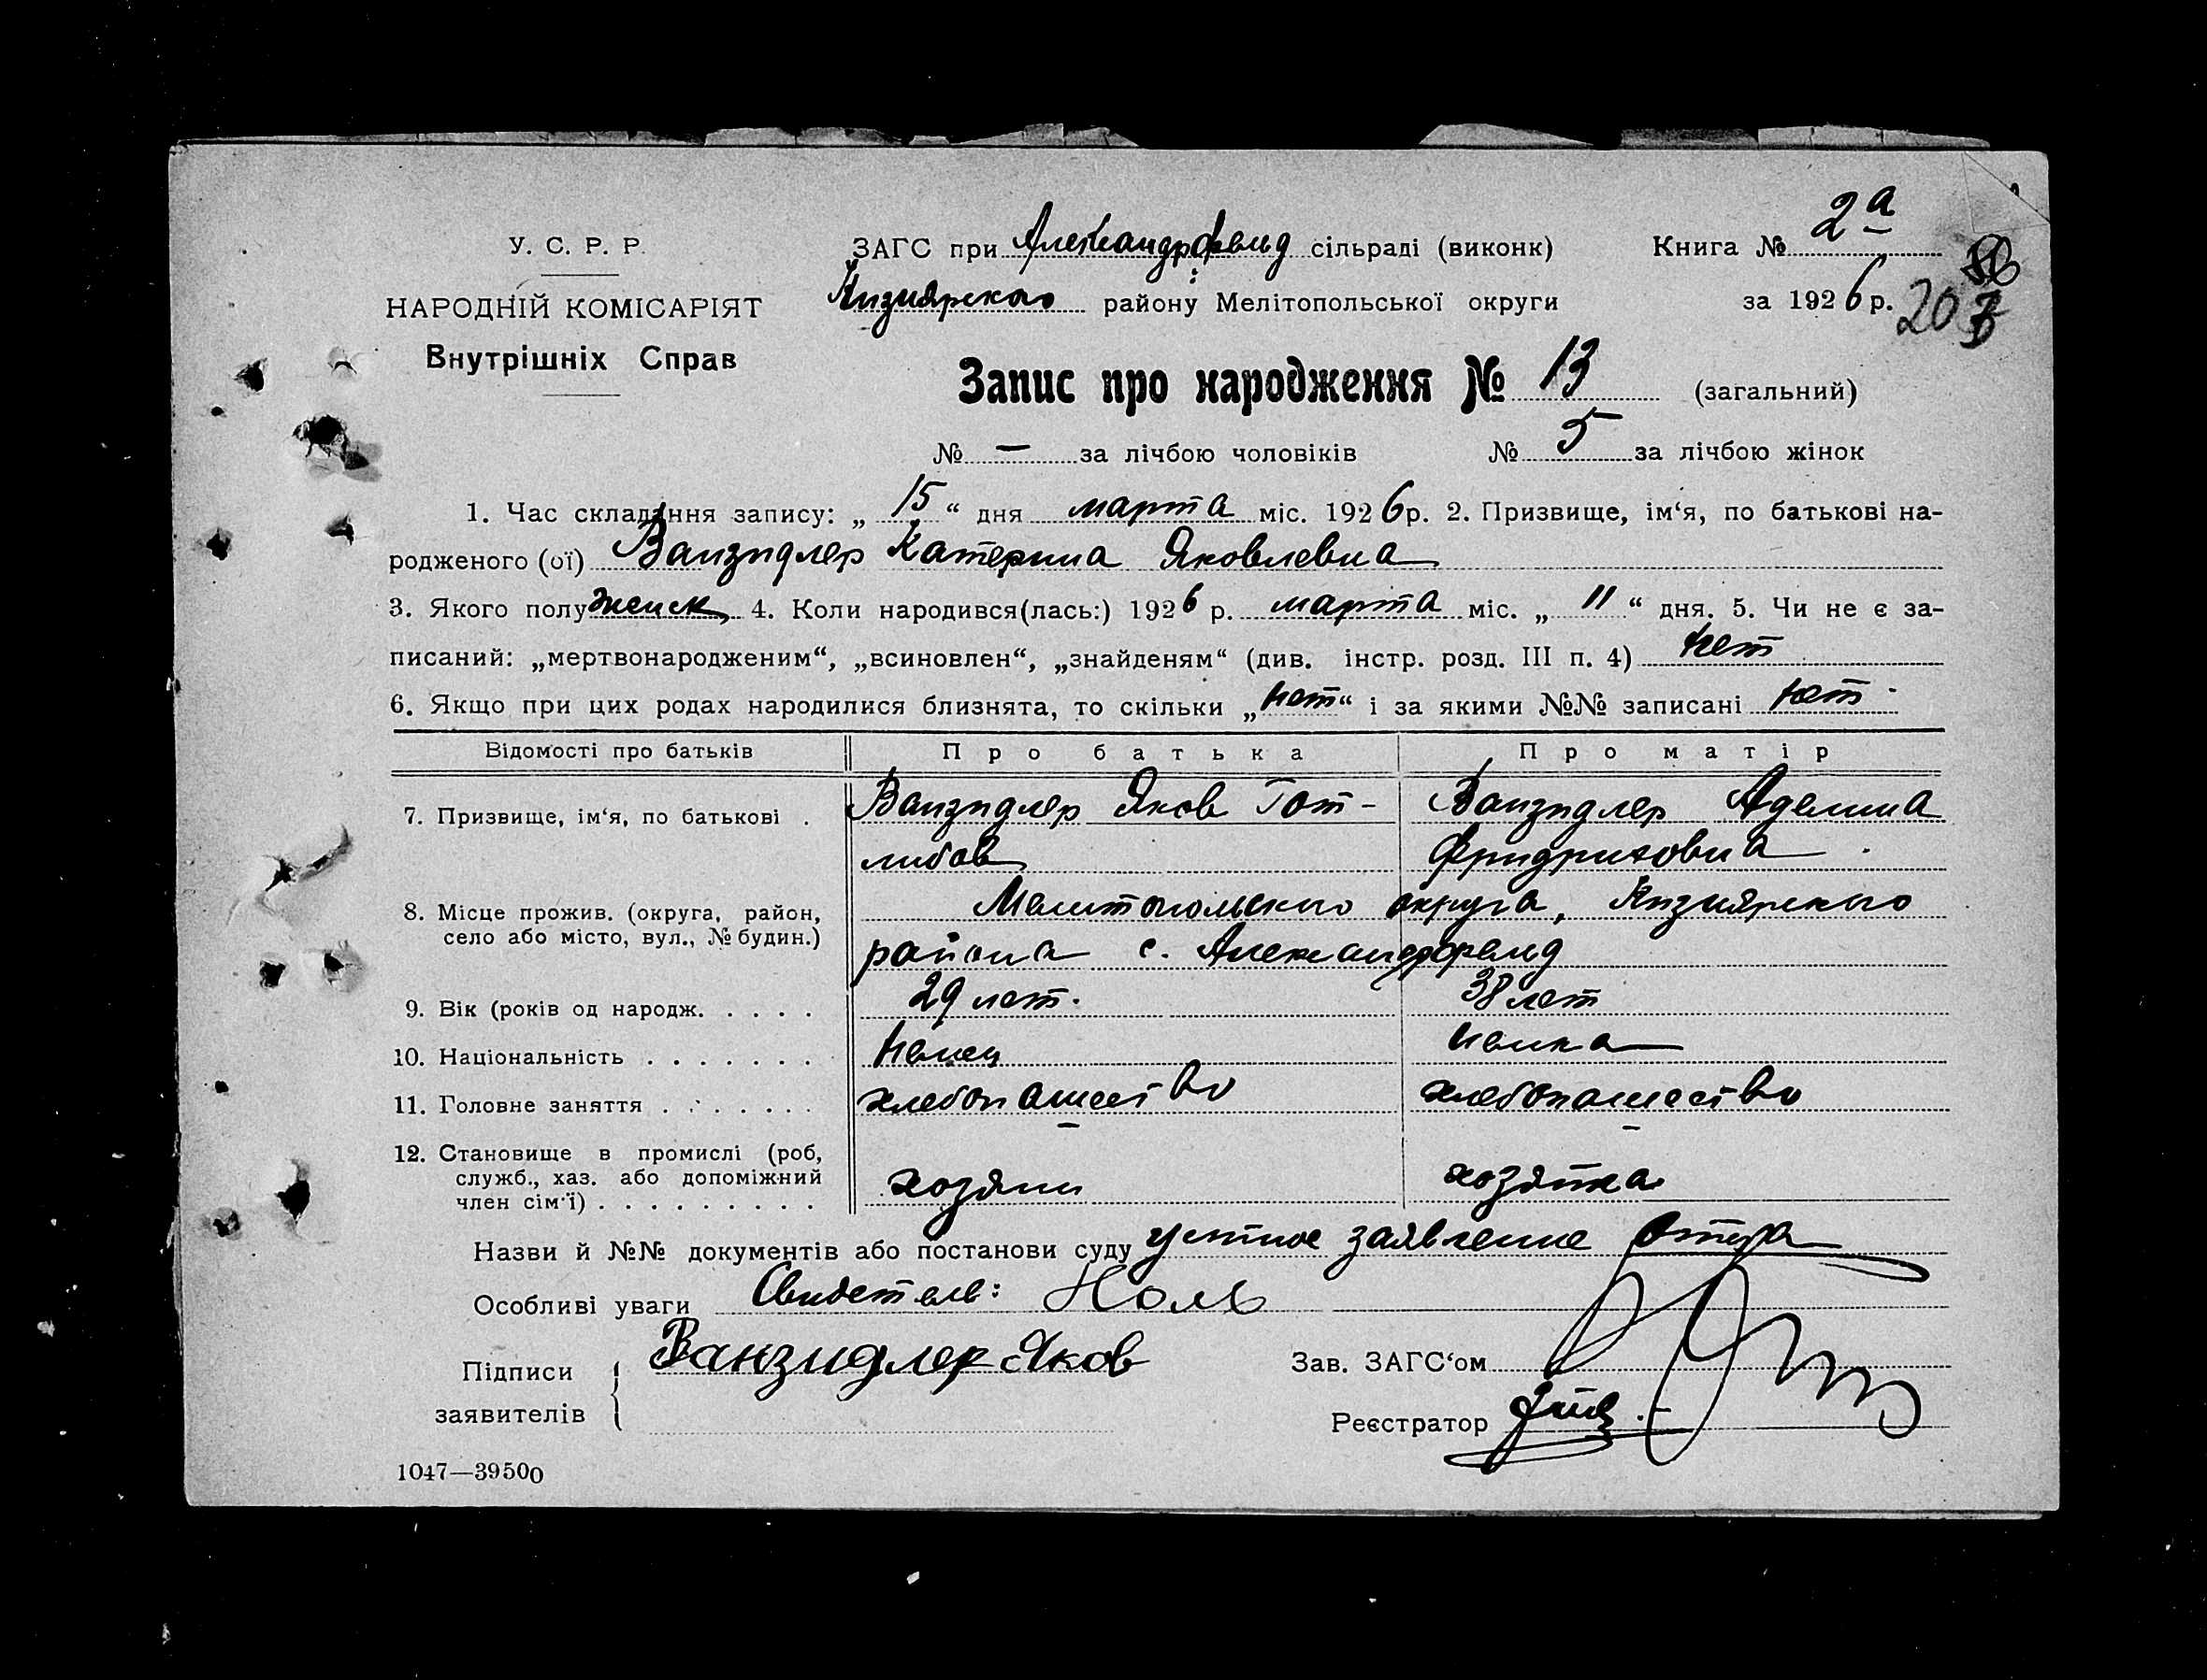 2а
У. С. Р. Р.
ЗАГС при Александрфельд сільраді (виконк)
Книга №
НАРОДНІЙ КОМІСАРІЯТ
Кизиярского району Мелітопольської округи
за 1926 р.
20
Внутрішніх Справ
Запис про народження № 13 (загальний)
№ — за лічбою чоловіків № 5 за лічбою жінок
1. Час складання запису: „15“ дня марта міс. 1926 р. 2. Призвище, ім‘я, по батькові на-
родженого (ої) Ванзидлер Катерина Яковлевна
3. Якого полу женск 4. Коли народився(лась:) 1926 р. марта міс. „11“ дня. 5. Чи не є за-
писаний: „мертвонародженим“, „всиновлен“, „знайденям“ (див. інстр. розд. III п. 4) нет
6. Якщо при цих родах народилися близнята, то скільки „нет“ і за якими №№ записані нет
Відомості про батьків Про батька Про матір
7. Призвище, ім‘я, по батькові . Ванзидлер Яков Гот- Ванзидлер Аделина
либов Фридриховна
8. Місце прожив. (округа, район, село або місто, вул., № будин.) Мелитопольского округа, Кизиярского
района с. Александрфельд
9. Вік (років од народж. . . . . 29 лет. 38 лет
10. Національність . . . . . . . Немец немка
11. Головне заняття . . . . . . . хлебопашество хлебопашество
12. Становище в промислі (роб,
служб., хаз. або допоміжний
член сім‘ї) . . . . . . . . . хозяин хозяйка
Назви й №№ документів або постанови суду устное заявление отца
Особливі уваги Свидетель: Ноль
Підписи Ванзидлер Яков Зав. ЗАГС‘ом
заявителів Реєстратор
1047—39500